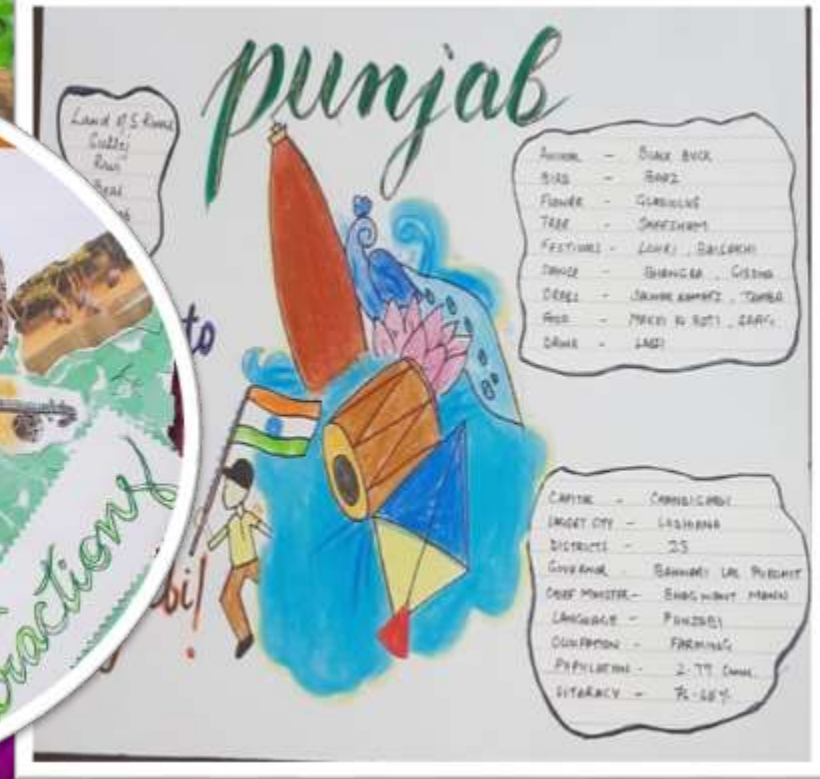 punjab
Land of 5 Rivers
Ravi
Beas
to
ANIMAL - BLACK BUCK
BIRD - BAAZ
FLOWER - GLADIOLUS
TREE - SHEESHAM
FESTIVALS - LOHRI, BAISAKHI
DANCE - BHANGRA, GIDDHA
DRESS - SALWAR KAMEEZ, TAMBA
FOOD - MAKKI KI ROTI, SAAG
DRINK - LASSI
CAPITAL - CHANDIGARH
LARGEST CITY - LUDHIANA
DISTRICTS - 23
GOVERNOR - BANWARI LAL PUROHIT
CHIEF MINISTER - BHAGWANT MANN
LANGUAGE - PUNJABI
OCCUPATION - FARMING
POPULATION - 2.77 Crore
LITERACY -
bi!
ractions